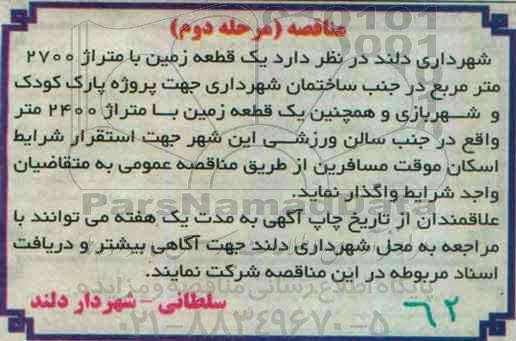 مناقصه (مرحله دوم)
شهرداری دلند در نظر دارد یک قطعه زمین با متراژ ۲۷۰۰
متر مربع در جنب ساختمان شهرداری جهت پروژه پارک کودک
و شهربازی و همچنین یک قطعه زمین با متراژ ۲۴۰۰ متر
واقع در جنب سالن ورزشی این شهر جهت استقرار شرایط
اسکان موقت مسافرین از طریق مناقصه عمومی به متقاضیان
واجد شرایط واگذار نماید.
ParsNamadData
علاقمندان از تاریخ چاپ آگهی به مدت یک هفته می توانند با
مراجعه به محل شهرداری دلند جهت آگاهی بیشتر و دریافت
اسناد مربوطه در این مناقصه شرکت نمایند.
پایگاه اطلاع رسانی مناقصه و مزایده
سلطانی - شهردار دلند
۶۲
۰۲۱-۸۸۳۴۹۶۷۰-۵